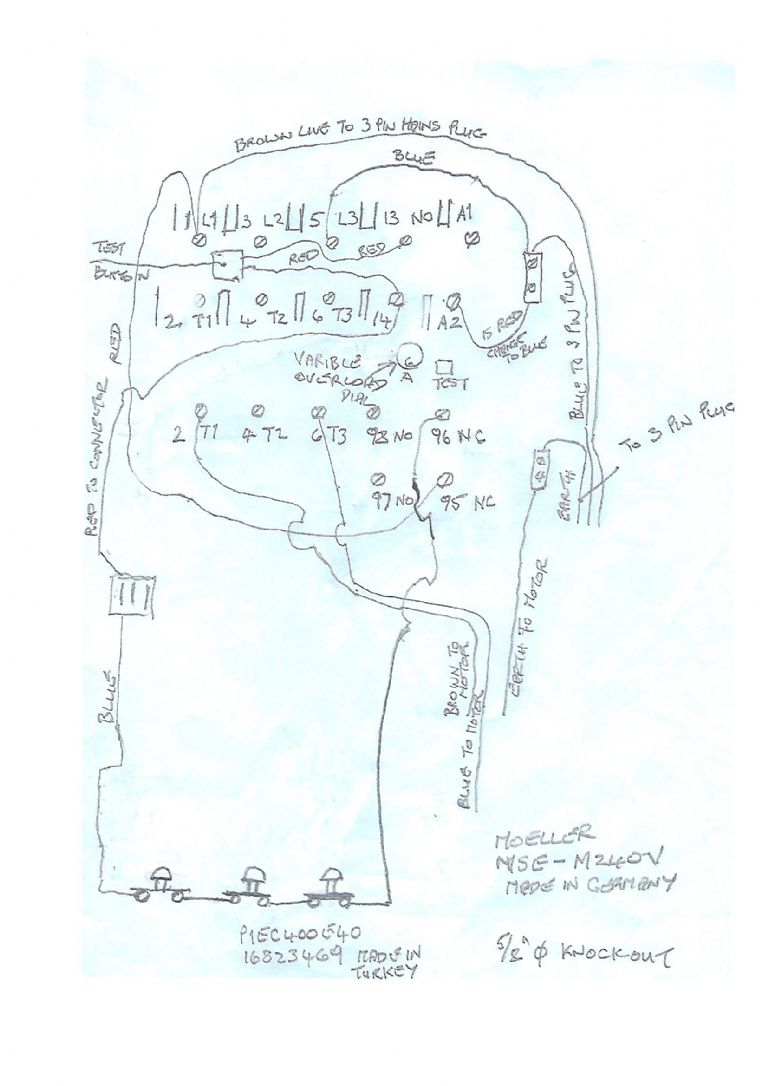 BROWN LIVE TO 3 PIN MAINS PLUG
BLUE
1 L1 3 L2 5 L3 13 NO A1
TEST
BUTTON
RED
RED
2 T1 4 T2 6 T3 14 A2
IS RED
CHANGE
TO BLUE
BLUE TO 3 PIN PLUG
RED
VARIBLE
OVERLOAD
DIAL
6
A
TEST
2 T1 4 T2 6 T3 98 NO 96 NC
97 NO 95 NC
TO 3 PIN PLUG
EARTH
RED TO CONNECTOR
EARTH TO MOTOR
BROWN TO
MOTOR
BLUE TO MOTOR
BLUE
MOELLER
MSE-M240V
MADE IN GERMANY
P1EC400E40
16823469 MADE IN
TURKEY
5/8" φ KNOCKOUT